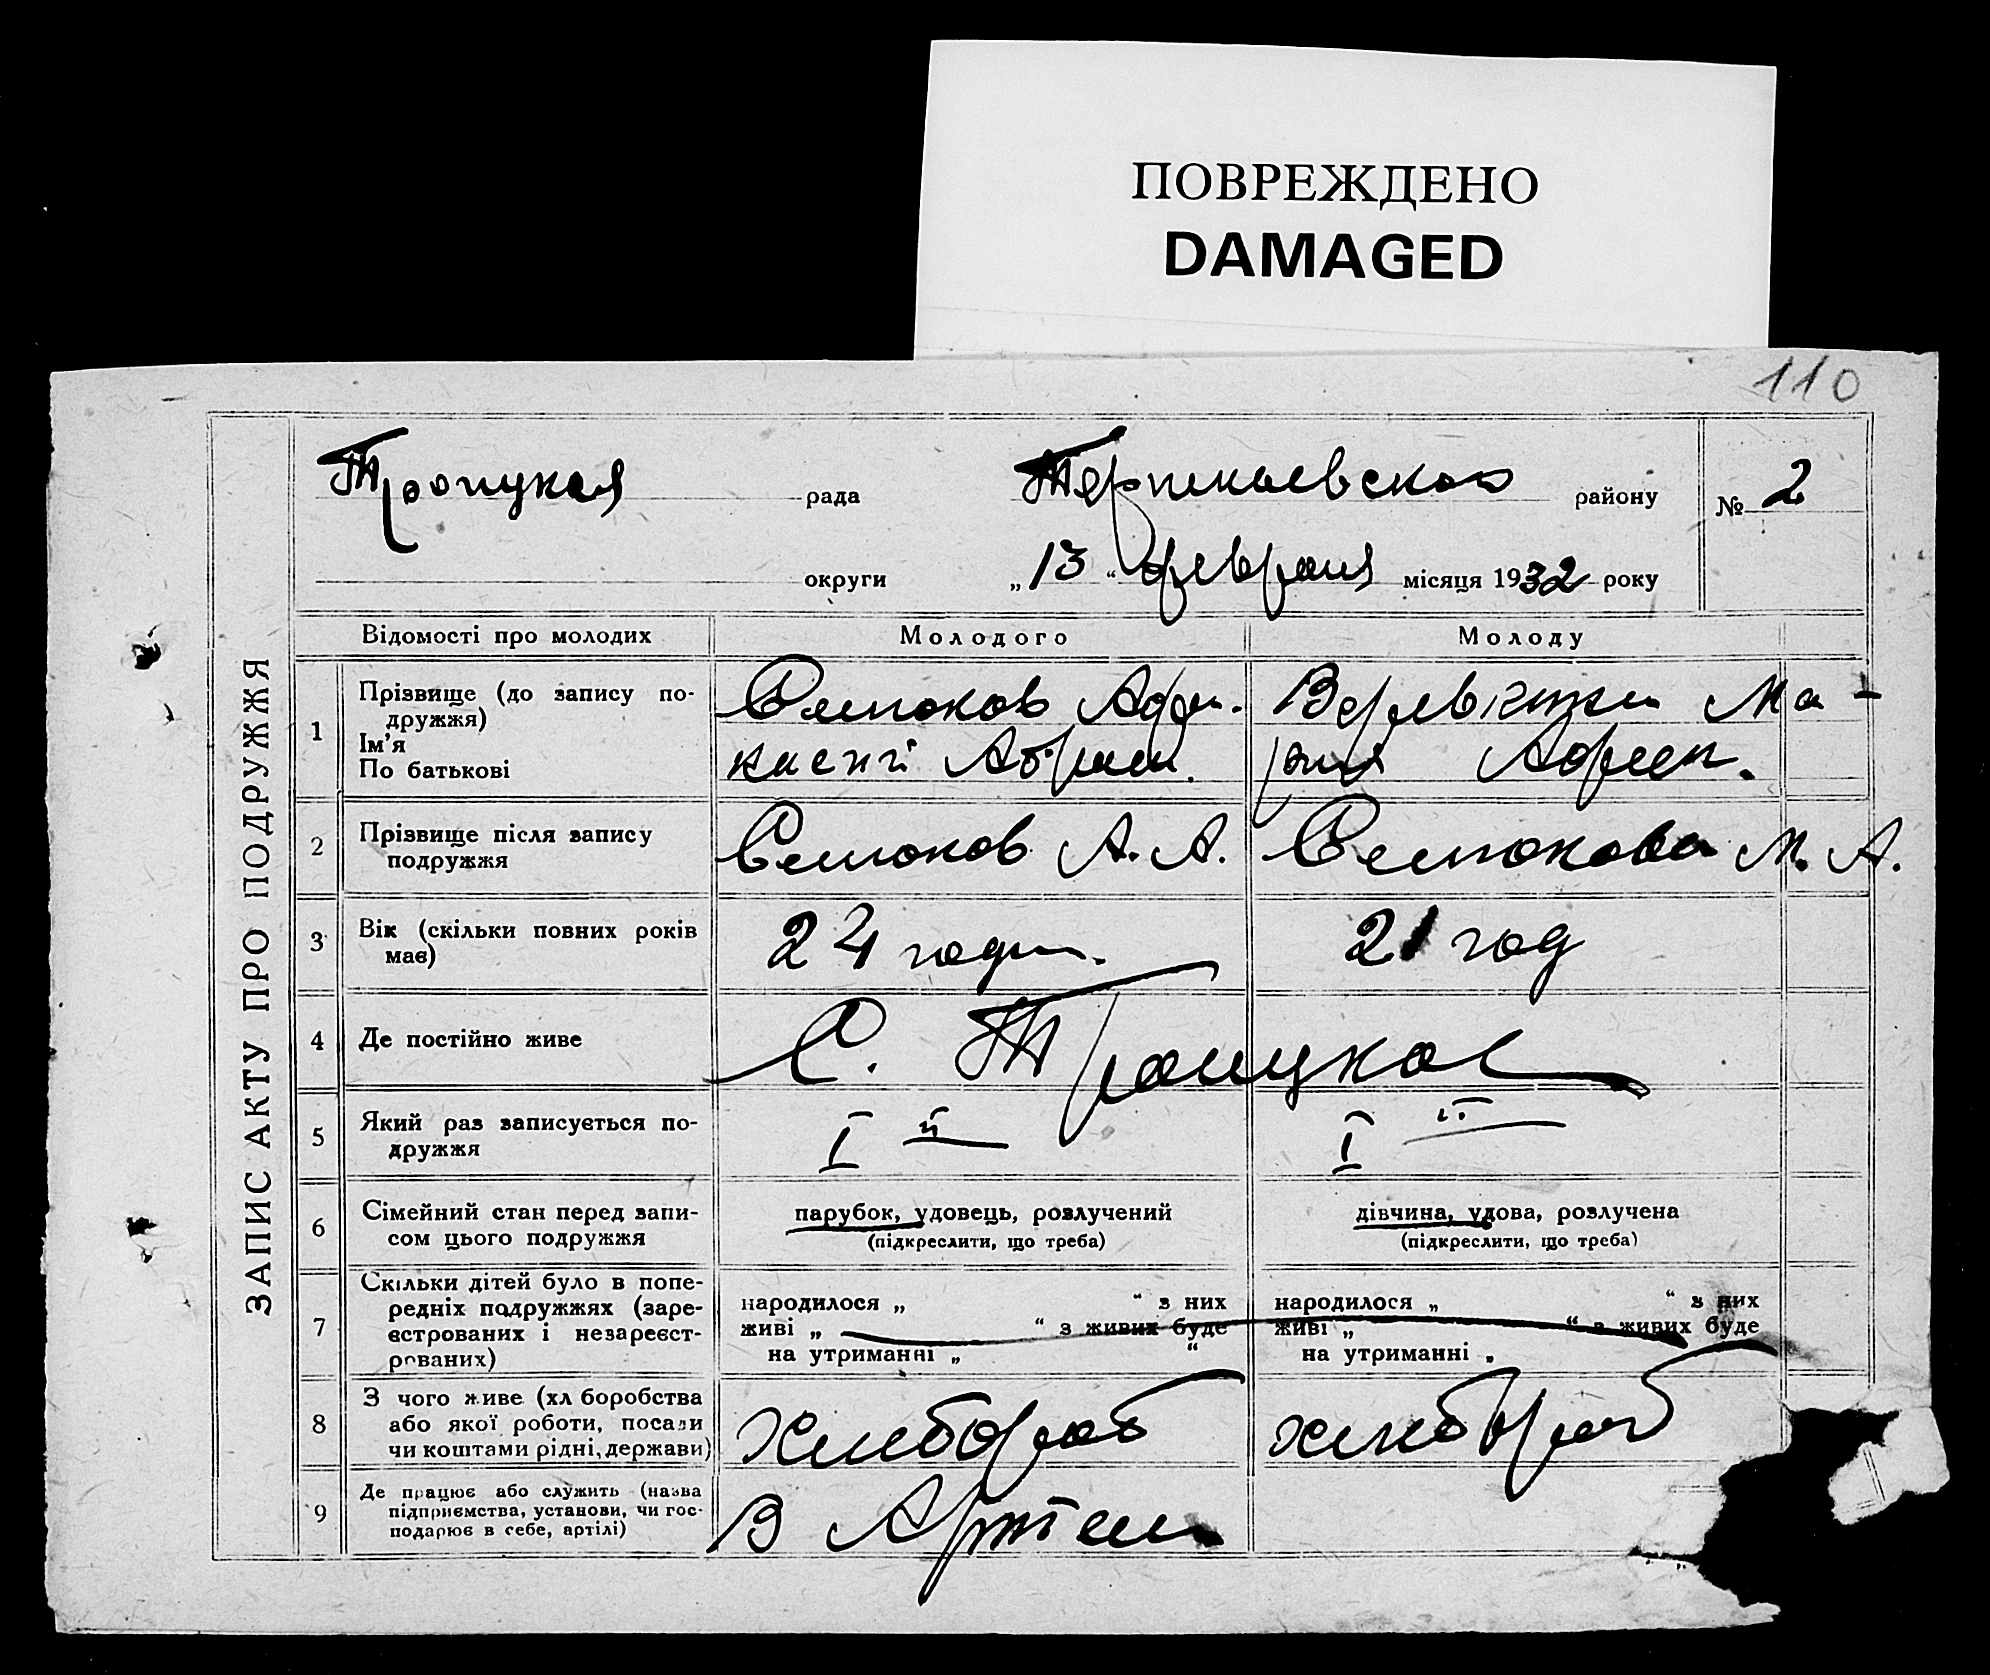 ПОВРЕЖДЕНО
DAMAGED
110
ЗАПИС АКТУ ПРО ПОДРУЖЖЯ
Троицкая рада района №2
округи „13“ февраля місяця 1932 року
Відомості про молодих Молодого Молоду
1 Прізвище (до запису по-
дружжя)
Ім'я
По батькові
Семоков
Ма-
рия
2 Прізвище після запису
подружжя
Семоков А. А. Семокова М. А.
3 Вік (скільки повних років
має)
24 года. 21 год
4 Де постійно живе
С. Троицкое
5 Який раз записується по-
дружжя
I й I й
6 Сімейний стан перед запи-
сом цього подружжя
парубок, удовець, розлучений
(підкреслити, що треба)
дівчина, удова, розлучена
(підкреслити, що треба)
7 Скільки дітей було в попе-
редніх подружжях (заре-
єстрованих і незареєст-
рованих)
народилося „ “ з них
живі „ “ з живих буде
на утриманні „ “
народилося „ “ з них
живі „ “ з живих буде
на утриманні „
8 З чого живе (хл боробства
або якої роботи, посади
чи коштами рідні, держави)
хлебороб хлебороб
9 Де працює або служить (назва
підприємства, установи, чи гос-
подарює в себе, артілі)
В Артели